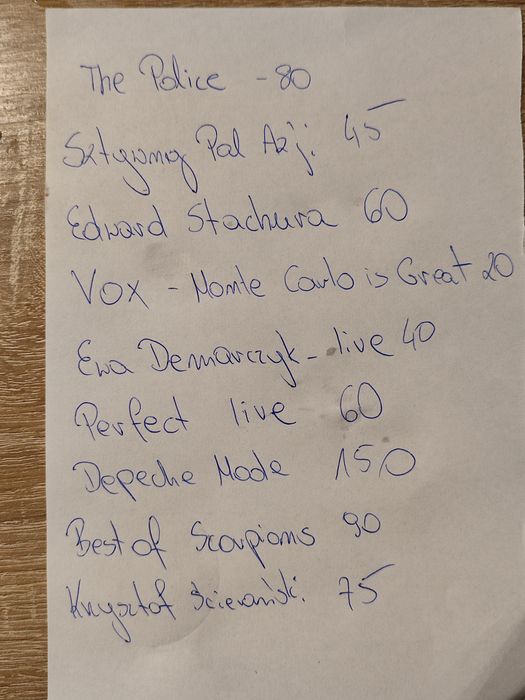 The Police - 80
Sztywny Pal Azji 45
Edward Stachura 60
VOX - Monte Carlo is Great 20
Ewa Demarczyk - live 40
Perfect live 60
Depeche Mode 150
Best of Scorpions 90
Krzysztof Ścierański 75